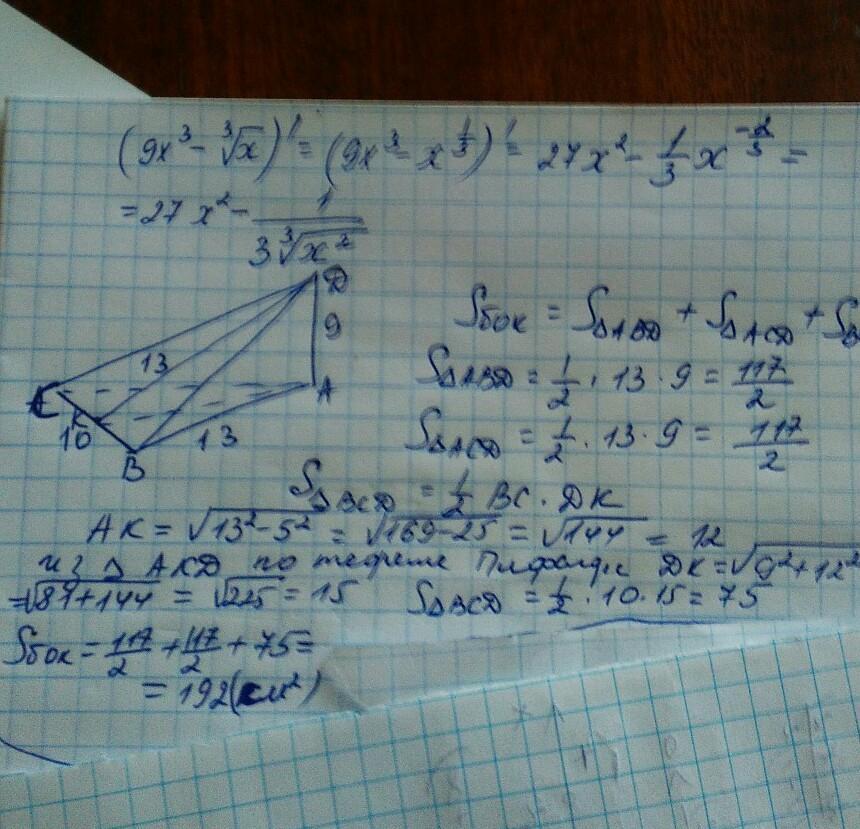 (9x³ - ∛x)' = (9x³ - x^(1/3))' = 27x² - 1/3 x^(-2/3) =
= 27x² - 1/(3∛x²)
D
9
13
A
C
K
10
13
B
Sбок = S△ABD + S△ACD + S
S△ABD = 1/2 · 13 · 9 = 117/2
S△ACD = 1/2 · 13 · 9 = 117/2
S△BCD = 1/2 BC · DK
AK = √(13² - 5²) = √(169 - 25) = √144 = 12
из △ AKD по теореме Пифагора DK = √(9² + 12²
= √(81 + 144) = √225 = 15 S△BCD = 1/2 · 10 · 15 = 75
Sбок = 117/2 + 117/2 + 75 =
= 192 (см²)